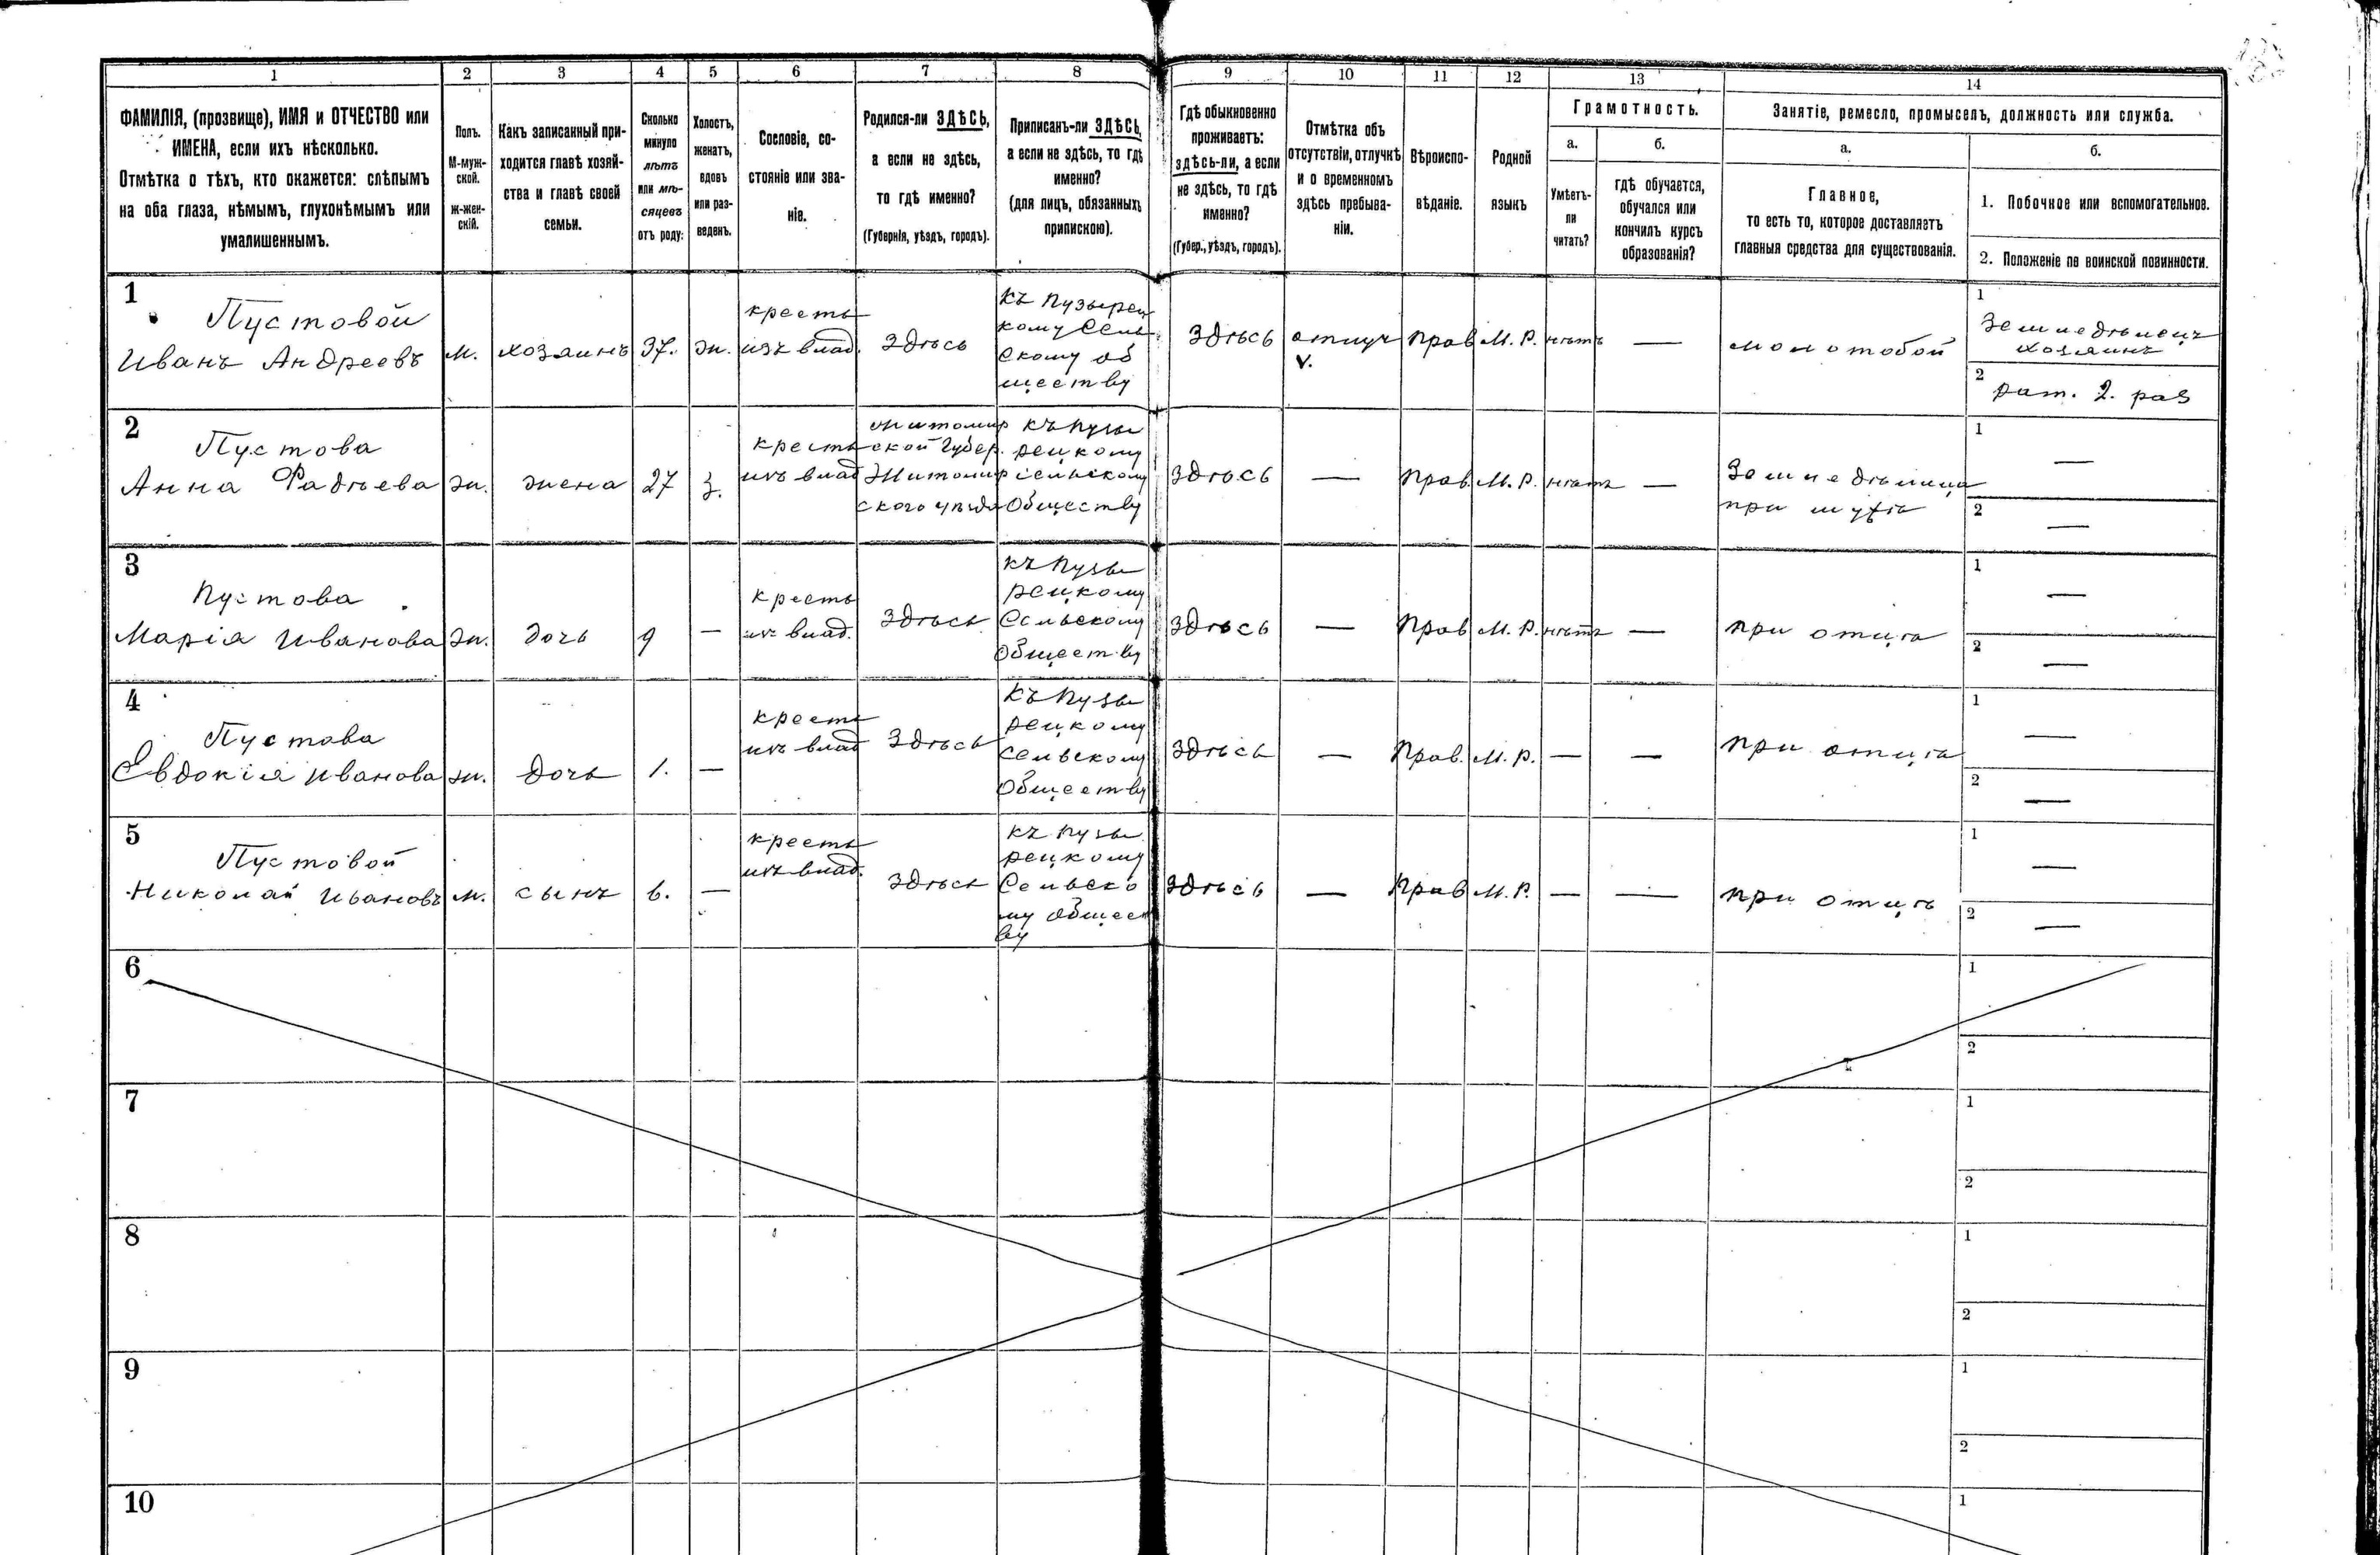 1 2 3 4 5 6 7 8 9 10 11 12 13 14
ФАМИЛІЯ, (прозвище), ИМЯ и ОТЧЕСТВО или
ИМЕНА, если ихъ нѣсколько.
Отмѣтка о тѣхъ, кто окажется: слѣпымъ
на оба глаза, нѣмымъ, глухонѣмымъ или
умалишеннымъ.
Полъ.
М-муж-
ской.
Ж-жен-
скій.
Какъ записанный при-
ходится главѣ хозяй-
ства и главѣ своей
семьи.
Сколько
минуло
лѣтъ
или мѣ-
сяцевъ
отъ роду.
Холостъ,
женатъ,
вдовъ
или раз-
веденъ.
Сословіе, со-
стояніе или зва-
ніе.
Родился-ли ЗДѢСЬ,
а если не здѣсь,
то гдѣ именно?
(Губернія, уѣздъ, городъ).
Приписанъ-ли ЗДѢСЬ,
а если не здѣсь, то гдѣ
именно?
(для лицъ, обязанныхъ
припискою).
Гдѣ обыкновенно
проживаетъ:
здѣсь-ли, а если
не здѣсь, то гдѣ
именно?
(Губер., уѣздъ, городъ).
Отмѣтка объ
отсутствіи, отлучкѣ
и о временномъ
здѣсь пребыва-
ніи.
Вѣроиспо-
вѣданіе.
Родной
языкъ
Грамотность.
а.
Умѣетъ-
ли
читать?
б.
гдѣ обучается,
обучался или
кончилъ курсъ
образованія?
Занятіе, ремесло, промыселъ, должность или служба.
а.
Главное,
то есть то, которое доставляетъ
главныя средства для существованія.
б.
1. Побочное или вспомогательное.
2. Положеніе по воинской повинности.
1
Пустовой
Иванъ Андреевъ
м.
хозяинъ
37.
ж.
кресть
изъ влад.
Здѣсь
къ Пузырец
кому Сель
скому об
ществу
Здѣсь
отлуч
V.
Прав
М. Р.
нѣтъ
—
молотобой
1
Земледѣлецъ
хозяинъ
2
рат. 2. раз
2
Пустова
Анна Фадѣева
ж.
жена
27
з.
кресть
изъ влад
Житомир
ской Губер.
Житомир
ского уѣзда
къ Пузы
рецкому
сельскому
Обществу
здѣсь
—
Прав.
М. Р.
нѣтъ
—
Земледѣлица
при мужѣ
1
—
2
—
3
Пустова
Марія Иванова
ж.
дочь
9
—
кресть
изъ влад.
Здѣсь
къ Пузы
рецкому
Сельскому
Обществу
Здѣсь
—
Прав
М. Р.
нѣтъ
—
при отцѣ
1
—
2
—
4
Пустова
Евдокія Иванова
ж.
дочь
1.
—
кресть
изъ влад
Здѣсь
къ Пузы
рецкому
сельскому
Обществу
Здѣсь
—
Прав.
М. Р.
—
—
при отцѣ
1
—
2
—
5
Пустовой
Николай Ивановъ
м.
сынъ
6.
—
кресть
изъ влад.
Здѣсь
къ Пузы
рецкому
Сельско
му общест
ву
Здѣсь
—
Прав
М. Р.
—
—
при отцѣ
1
—
2
—
6
1
2
7
1
2
8
1
2
9
1
2
10
1